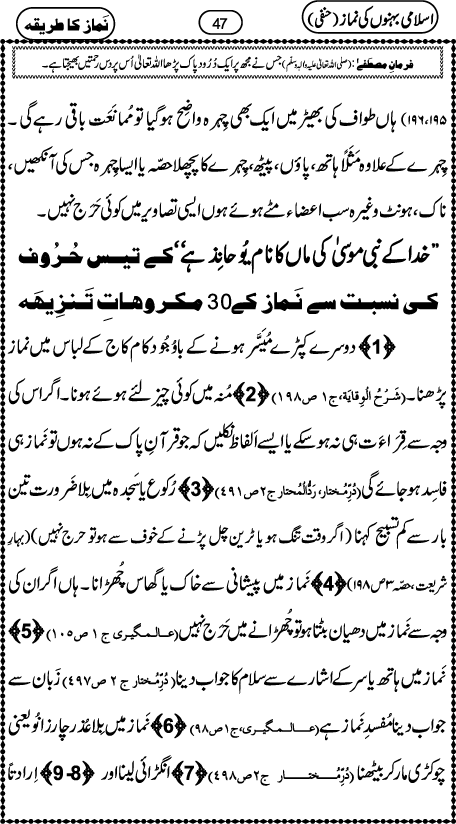 اسلامی بہنوں کی نماز (حنفی) 47 نَماز کا طریقہ
فرمانِ مصطفےٰ: (صلی اللہ تعالیٰ علیہ والہ وسلم) جس نے مجھ پر ایک دُرُود پاک پڑھا اللہ تعالیٰ اُس پر دس رحمتیں بھیجتا ہے۔
۱۹۶،۱۹۵) ہاں طواف کی بھیڑ میں ایک بھی چہرہ واضح ہو گیا تو مُمانَعت باقی رہے گی۔
چہرے کے علاوہ مَثَلًا ہاتھ، پاؤں، پیٹھ، چہرے کا پچھلا حصّہ یا ایسا چہرہ جس کی آنکھیں،
ناک، ہونٹ وغیرہ سب اعضاء مٹے ہوئے ہوں ایسی تصاویر میں کوئی حَرَج نہیں۔
”خدا کے نبی موسیٰ کی ماں کا نام یُوحانِذ ہے“ کے تیس حُرُوف
کی نسبت سے نَماز کے 30 مکروھاتِ تَنزِیھہ
﴿1﴾ دوسرے کپڑے مُیَسَّر ہونے کے باوُجُود کام کاج کے لباس میں نماز
پڑھنا۔ (شَرْحُ الْوِقَایَۃ، ج۱ ص۱۹۸) ﴿2﴾ مُنہ میں کوئی چیز لئے ہوئے ہونا۔ اگر اس کی
وجہ سے قِرَاءَت ہی نہ ہو سکے یا ایسے اَلفاظ نکلیں کہ جو قرآنِ پاک کے نہ ہوں تو نَماز ہی
فاسِد ہو جائے گی (دُرِّمُختار، رَدُّالْمُحتار ج۲ ص۴۹۱) ﴿3﴾ رُکوع یا سَجدہ میں بِلا ضَرورت تین
بار سے کم تسبیح کہنا (اگر وقت تنگ ہو یا ٹرین چل پڑنے کے خوف سے ہو تو حرج نہیں) (بہارِ
شریعت، حصّہ ۳ ص۱۹۸) ﴿4﴾ نَماز میں پیشانی سے خاک یا گھاس چُھڑانا۔ ہاں اگر ان کی
وجہ سے نَماز میں دھیان بٹتا ہو تو چُھڑانے میں حَرَج نہیں (عالمگیری ج ۱ ص۱۰۵) ﴿5﴾
نَماز میں ہاتھ یا سر کے اشارے سے سلام کا جواب دینا (دُرِّمُختار ج ۲ ص۴۹۷) زَبان سے
جواب دینا مُفسدِ نَماز ہے (عالمگیری، ج۱، ص۹۸) ﴿6﴾ نَماز میں بِلا عُذر چار زانُو یعنی
چوکڑی مار کر بیٹھنا (دُرِّمُختار ج۲ ص۴۹۸) ﴿7﴾ انگڑائی لینا اور ﴿8-9﴾ اِرادتاً